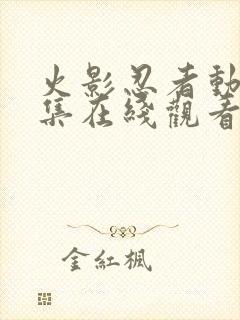 火影忍者動
集在綫觀看
金紅楓